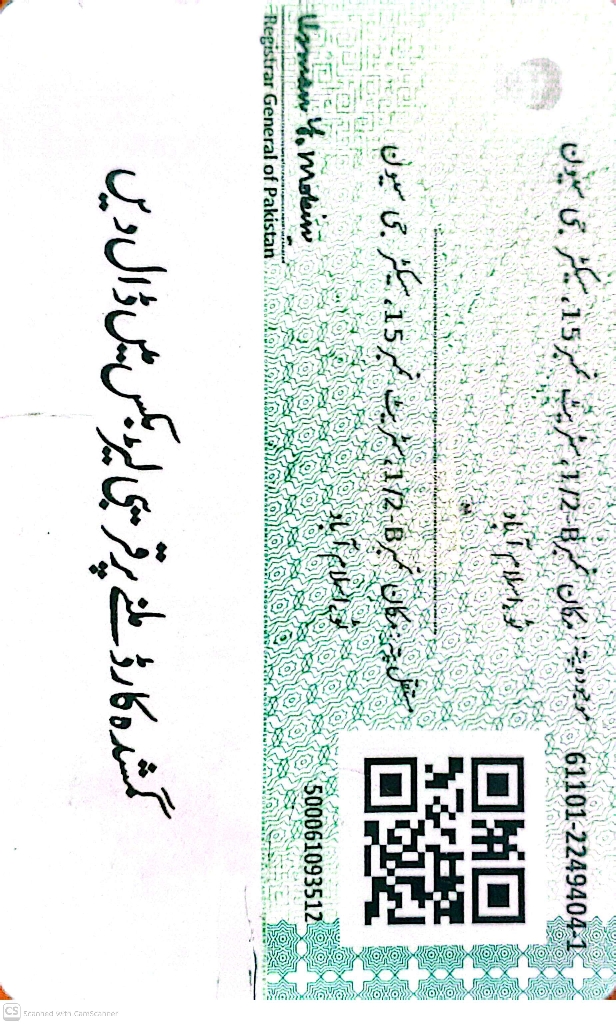 61101-2249404-1
موجودہ پتہ: مکان نمبر 1/2-B، سٹریٹ نمبر 15، سیکٹر جی سیون
ٹو، اسلام آباد
مستقل پتہ: مکان نمبر 1/2-B، سٹریٹ نمبر 15، سیکٹر جی سیون
ٹو، اسلام آباد
500061093512
Usman Y. Mobin
Registrar General of Pakistan
گمشدہ کارڈ ملنے پر قریبی لیٹر بکس میں ڈال دیں
CS Scanned with CamScanner